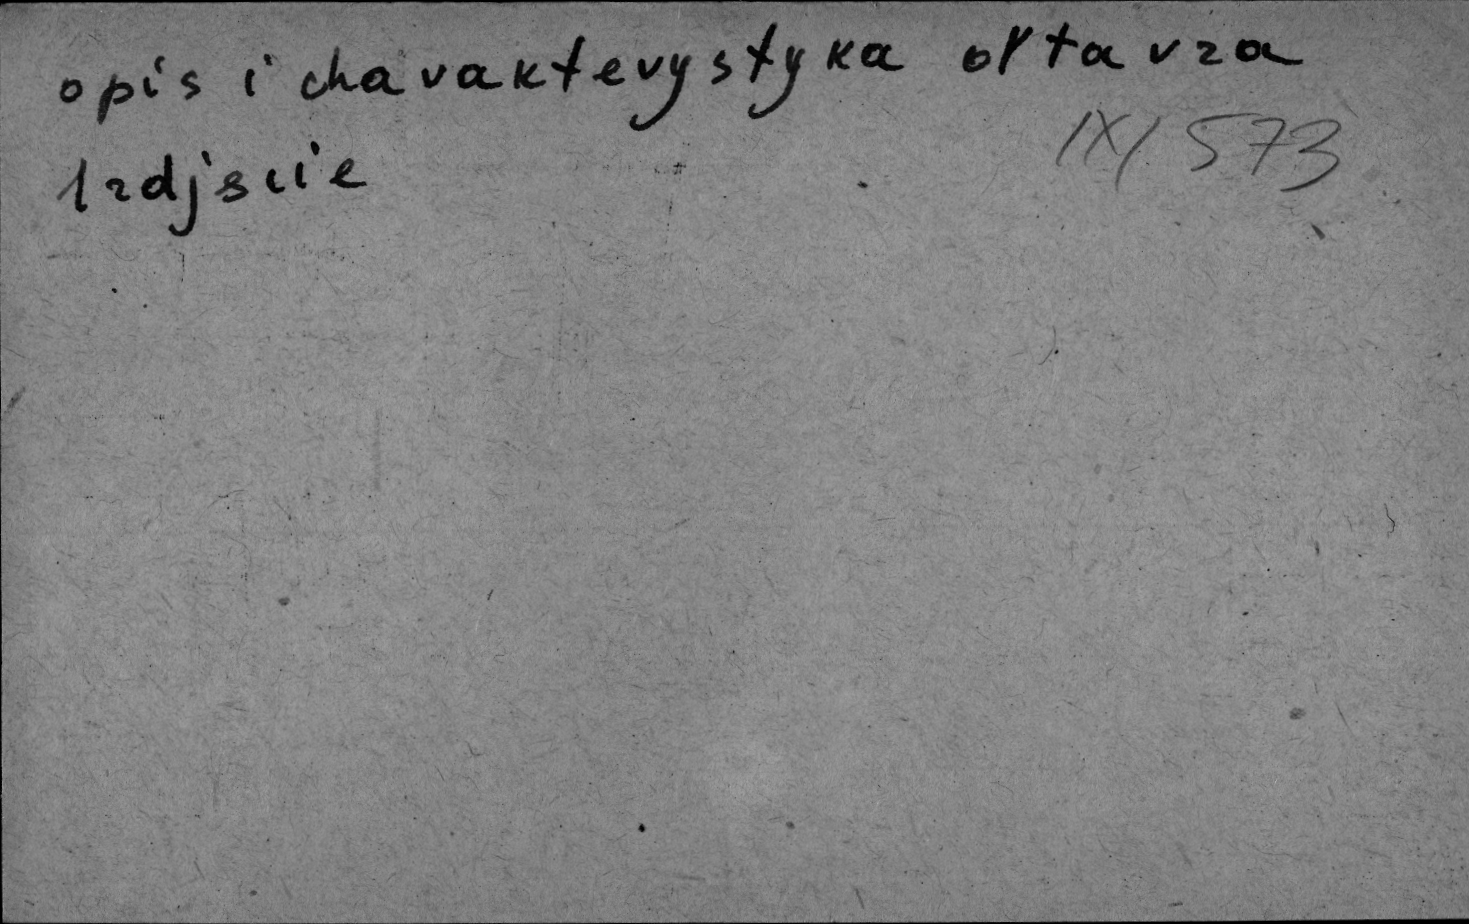 opis i charakterystyka ołtarza
IX/573
1 zdjęcie